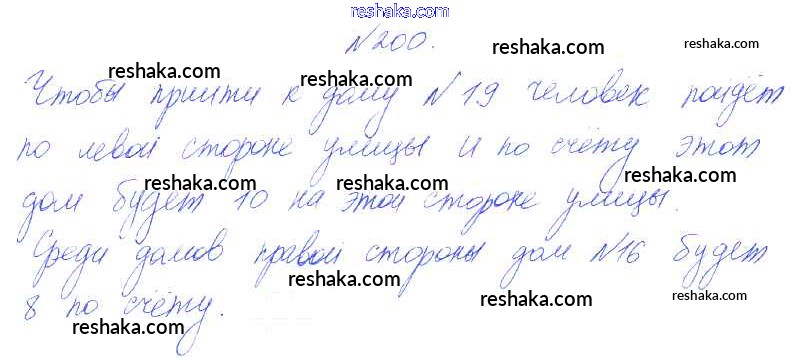 reshaka.com
№200. reshaka.com reshaka.com
reshaka.com reshaka.com
Чтобы прийти к дому №19 человек пойдёт
по левой стороне улицы и по счёту этот
reshaka.com reshaka.com reshaka.com
дом будет 10 на этой стороне улицы.
Среди домов правой стороны дом №16 будет
reshaka.com reshaka.com
8 по счёту.
reshaka.com reshaka.com reshaka.com